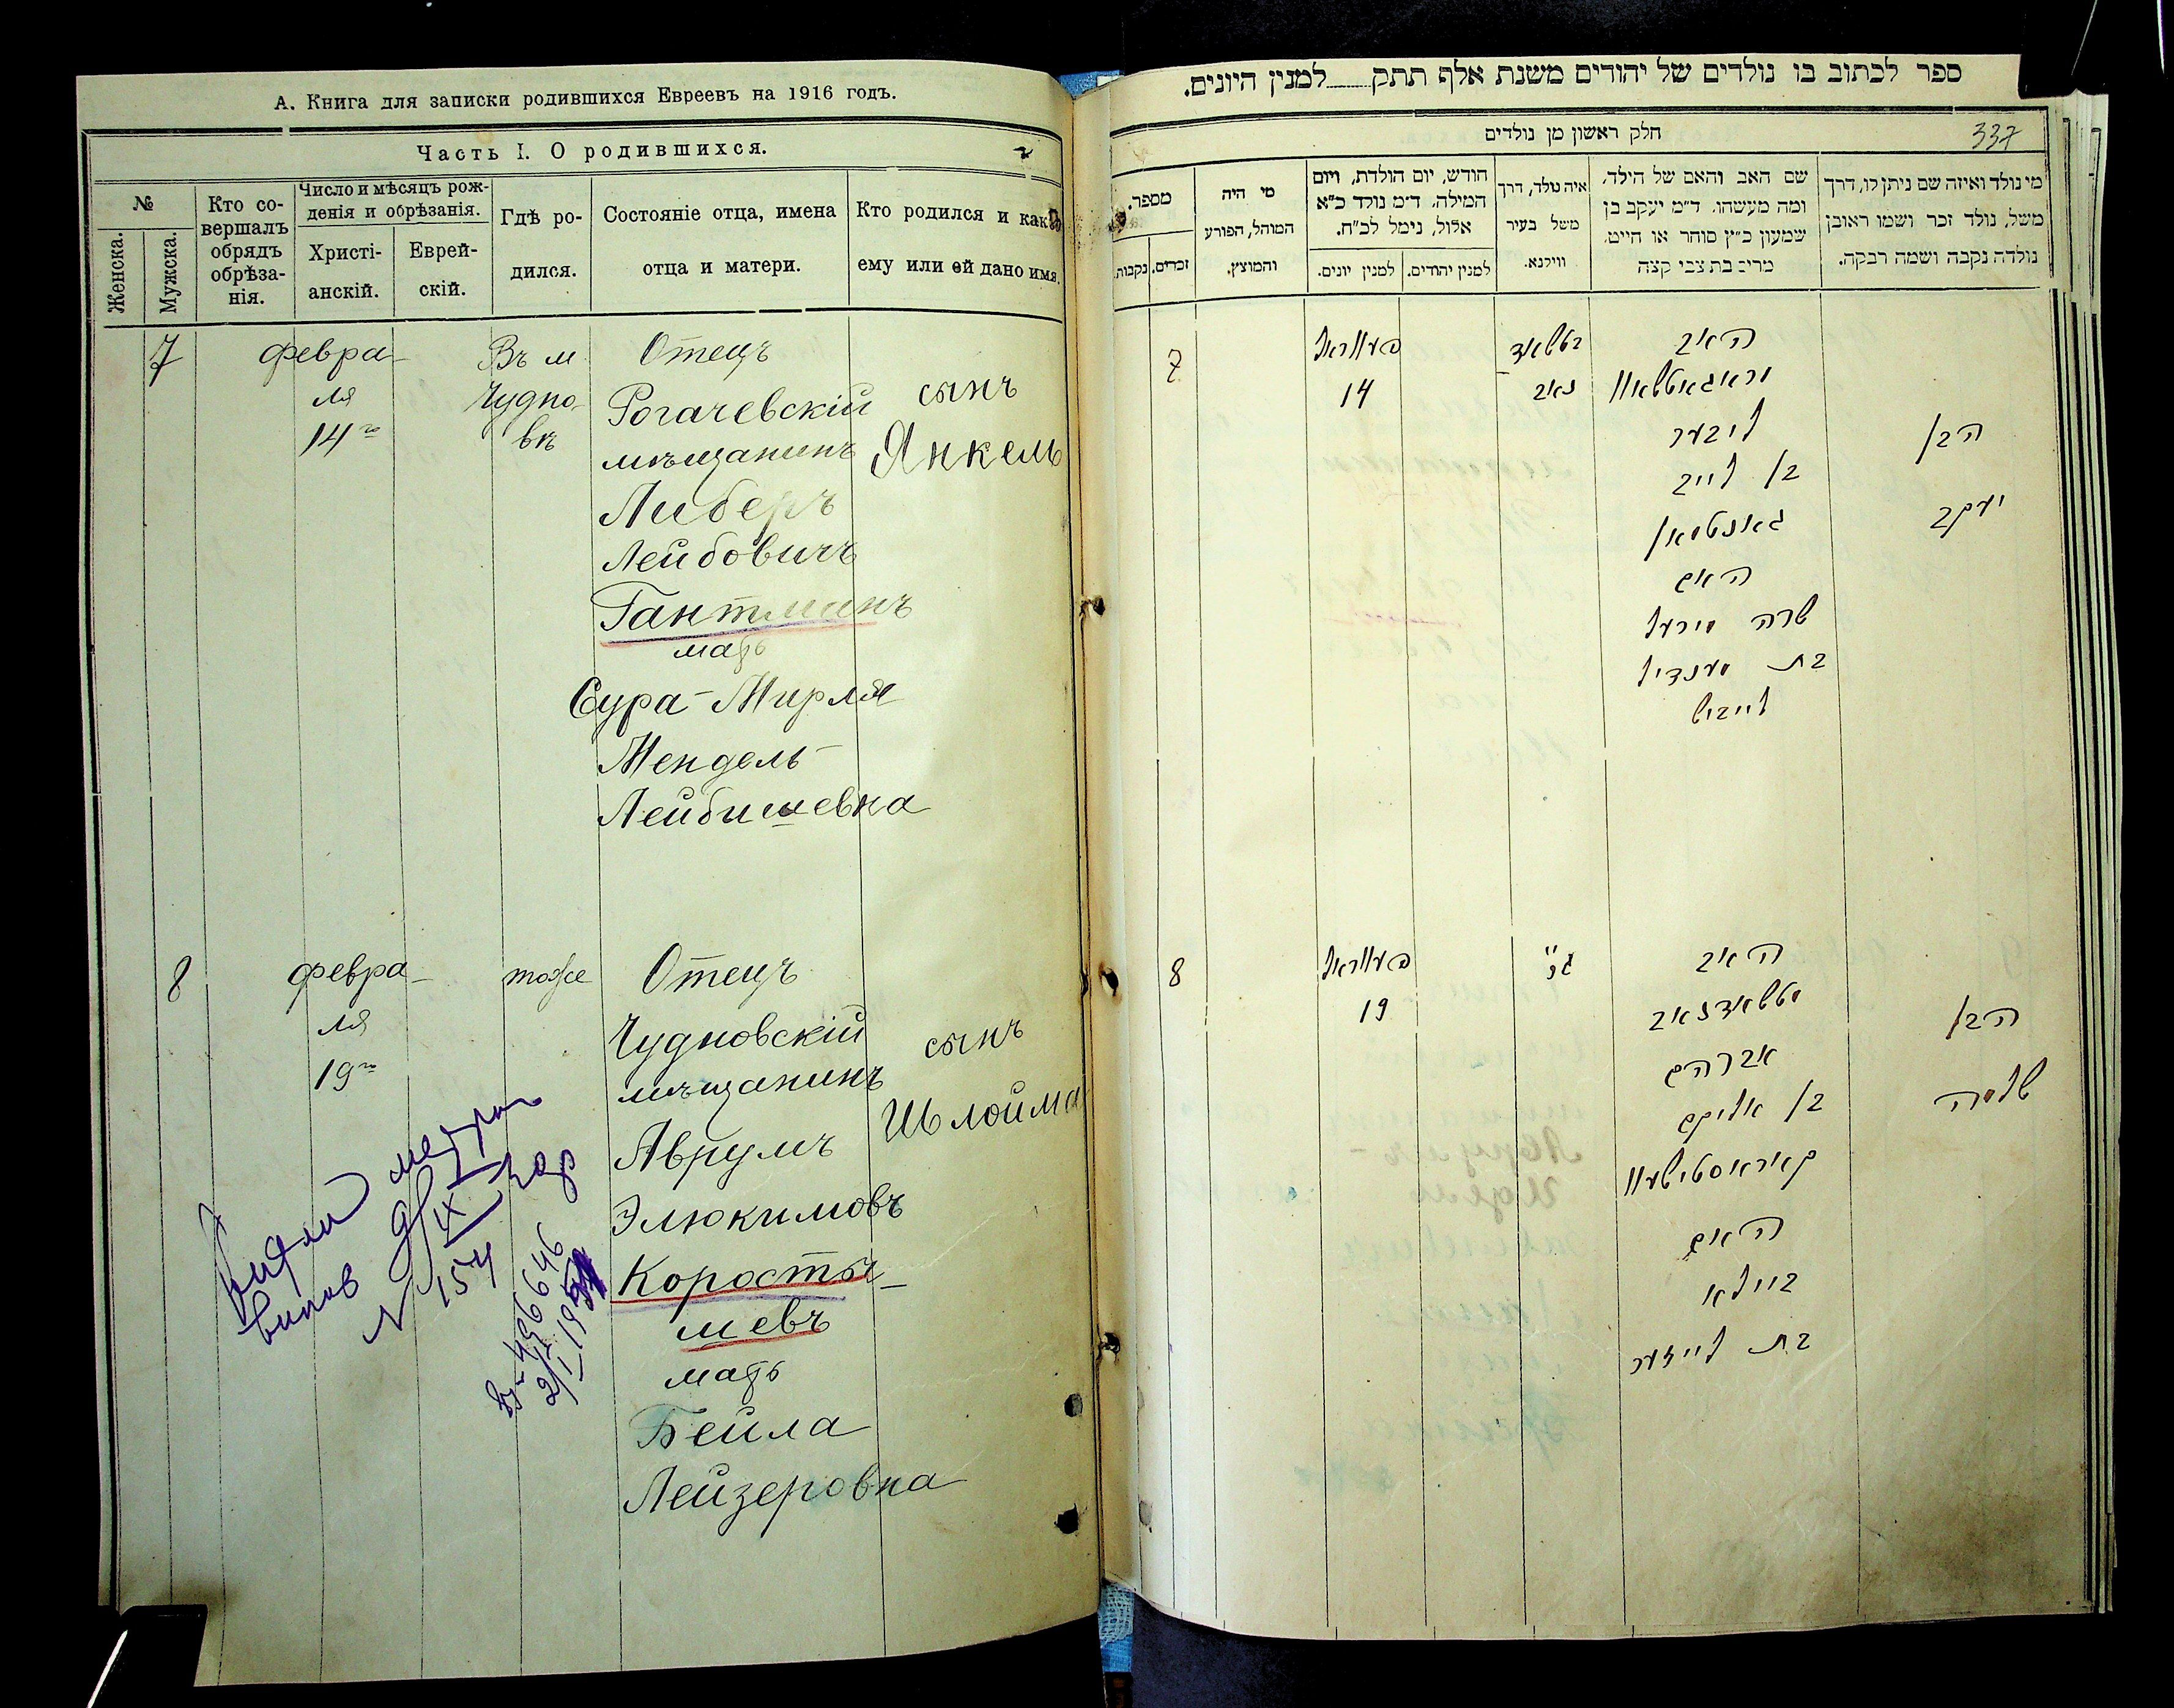 А. Книга для записки родившихся Евреевъ на 1916 годъ.
Часть I. О родившихся.
№
Женска.
Мужска.
Кто со-
вершалъ
обрядъ
обрѣза-
нія.
Число и мѣсяцъ рож-
денія и обрѣзанія.
Христі-
анскій.
Еврей-
скій.
Гдѣ ро-
дился.
Состояніе отца, имена
отца и матери.
Кто родился и како
ему или ей дано имя.
7
февра-
ля
14го
Въ м.
Чудно-
вѣ
Отецъ
Рогачевскій
мѣщанинъ
Либеръ
Лейбовичъ
Гантманъ
мать
Сура-Мирля
Мендель-
Лейбишевна
сынъ
Янкель
8
февра-
ля
19го
тоже
Отецъ
Чудновскій
мѣщанинъ
Аврумъ
Элюкимовъ
Коросты-
шевъ
мать
Бейла
Лейзеровна
сынъ
Шлойма
IX
N 154
496646
ספר לכתוב בו נולדים של יהודים משנת אלף תתק למנין היונים.
חלק ראשון מן נולדים
337
מספר.
נקבות.
זכרים.
מי היה
המוהל, הפורע
והמוצץ.
חודש, יום הולדת, ויום
המילה, ד״מ נולד כ״א
אלול, נימל לכ״ח.
למנין יונים.
למנין יהודים.
איה נולד, דרך
משל בעיר
ווילנא.
שם האב והאם של הילד,
ומה מעשהו. ד״מ יעקב בן
שמעון כ״ץ סוחר או חייט,
מרים בת צבי קצה
מי נולד ואיזה שם ניתן לו, דרך
משל, נולד זכר ושמו ראובן
נולדה נקבה ושמה רבקה.
7
14
האב
ליבער
בן לייב
גאנטמאן
האם
שרה מירעל
בת מענדיל
לייביש
הבן
יעקב
8
19
האב
אברהם
בן אליקם
קאראסטישעוו
האם
ביילא
בת לייזער
הבן
שלמה